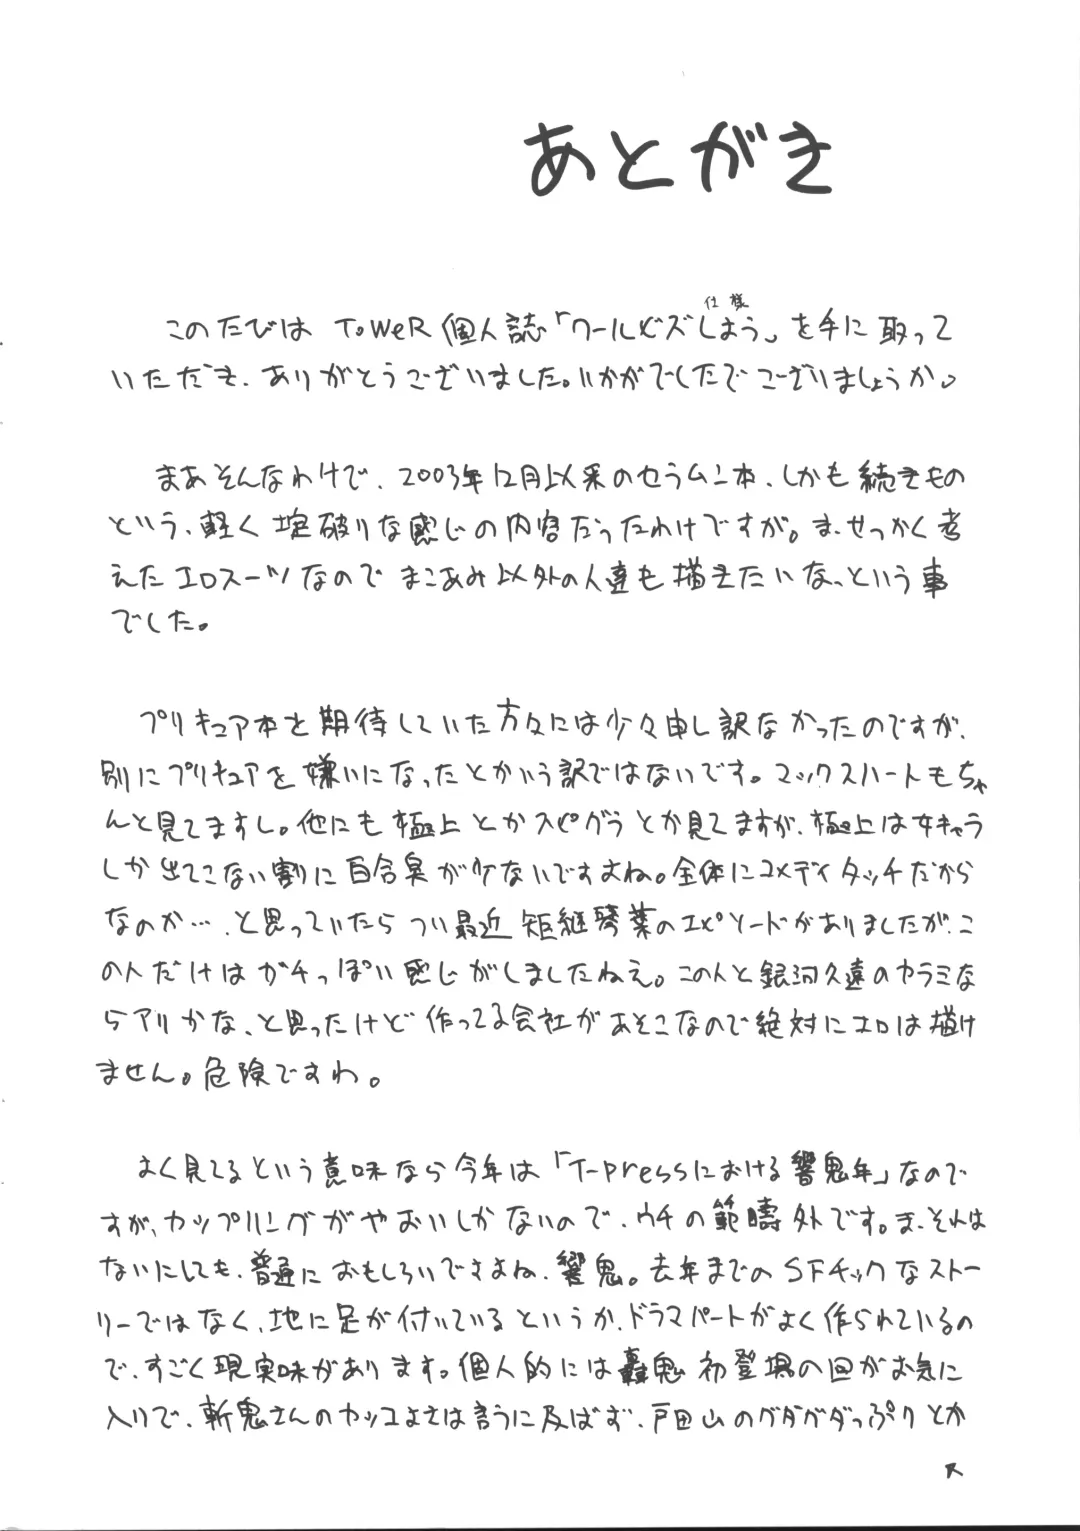 あとがき
仕様
このたびは ToWeR個人誌「ワールビズしよう」を手に取って
いただき、ありがとうございました。いかがでしたでございましょうか。
まあそんなわけで、2003年12月以来のセラムン本、しかも続きもの
という、軽く掟破りな感じの内容だったわけですが。ま、せっかく考
えたエロスーツなので まこあみ以外の人達も描きたいなっという事
でした。
プリキュア本を期待していた方々には少々申し訳なかったのですが、
別にプリキュアを嫌いになったとかいう訳ではないです。マックスハートもちゃ
んと見てますし。他にも極上とかスピグラとか見てますが、極上は女キャラ
しか出てこない割に百合臭が少ないですよね。全体にコメディタッチだから
なのか…、と思っていたらつい最近 矩継琴葉のエピソードがありましたが、こ
の人だけはガチっぽい感じがしましたねえ。この人と銀河久遠のカラミな
らアリかな、と思ったけど作ってる会社があそこなので絶対にエロは描け
ません。危険ですわ。
よく見てるという意味なら今年は「T-pressにおける響鬼年」なので
すが、カップリングがやおいしかないので、ウチの範疇外です。ま、それは
ないにしても、普通におもしろいですよね、響鬼。去年までのSFチックなストー
リーではなく、地に足が付いているというか、ドラマパートがよく作られているの
で、すごく現実味があります。個人的には轟鬼初登場の回がお気に
入りで、斬鬼さんのカッコよさは言うに及ばず、戸田山のグダグダっぷりとか